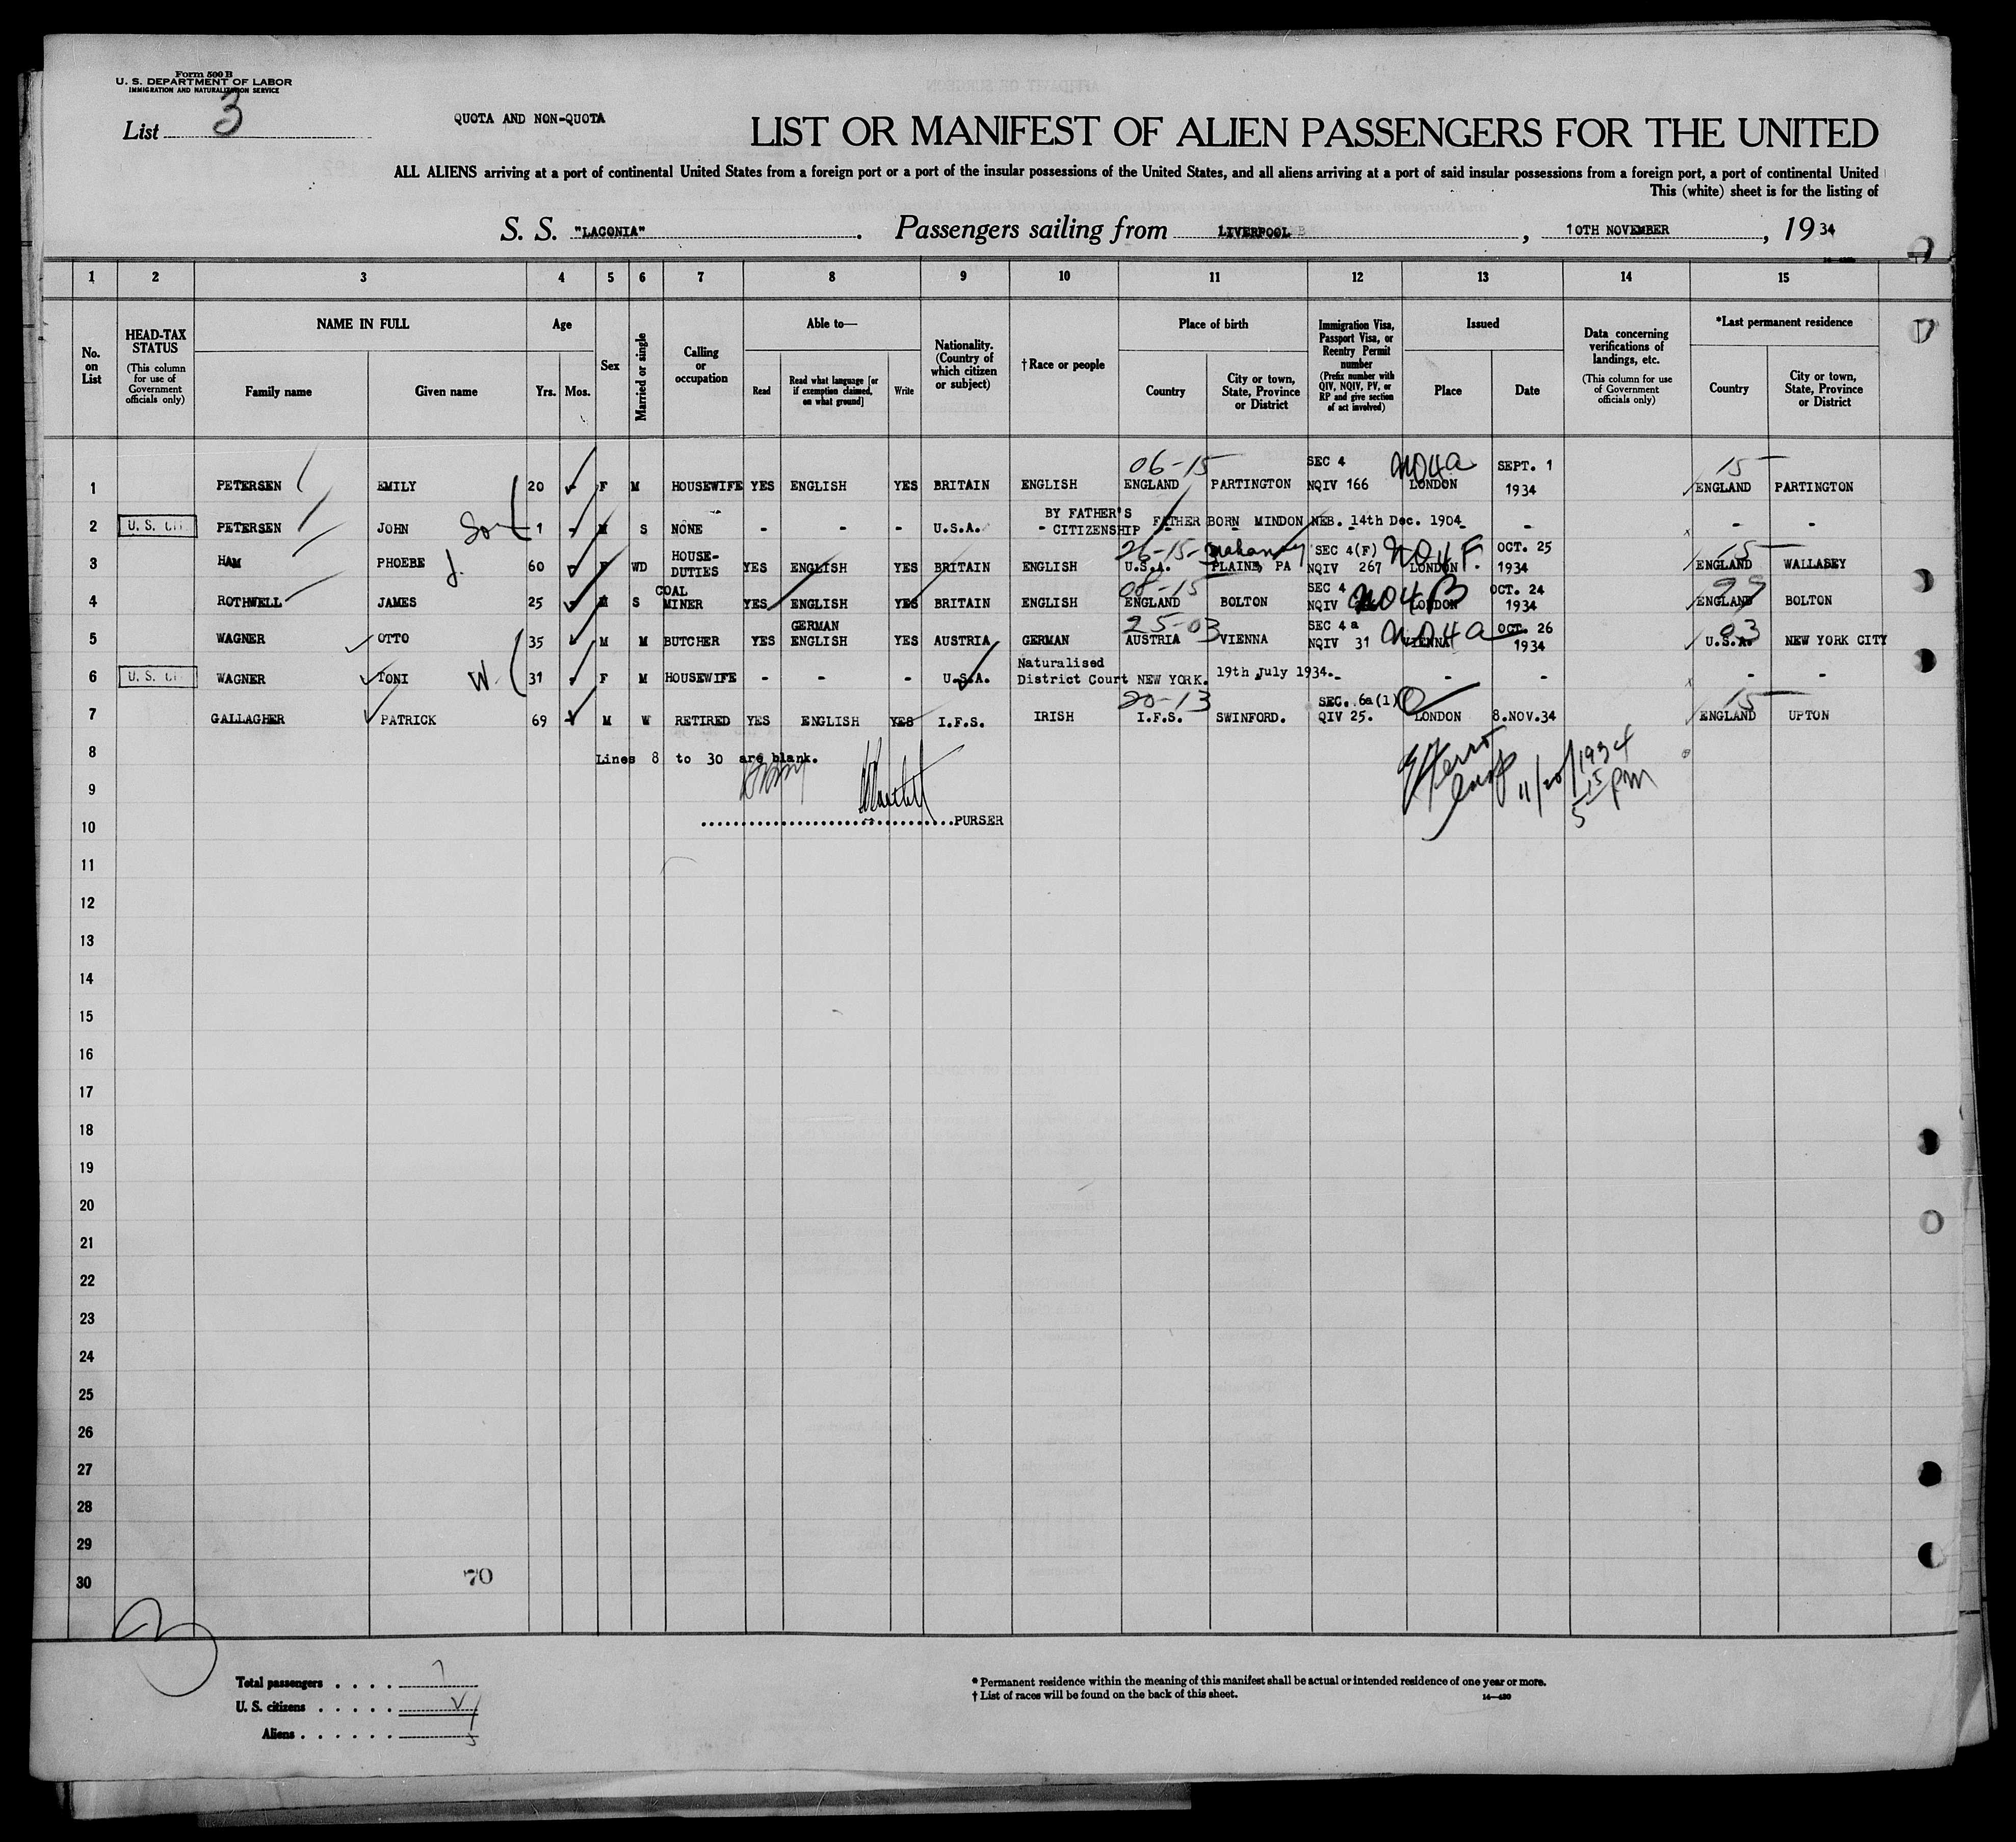 Form 500 B
U. S. DEPARTMENT OF LABOR
IMMIGRATION AND NATURALIZATION SERVICE
List 3
QUOTA AND NON-QUOTA
LIST OR MANIFEST OF ALIEN PASSENGERS FOR THE UNITED
ALL ALIENS arriving at a port of continental United States from a foreign port or a port of the insular possessions of the United States, and all aliens arriving at a port of said insular possessions from a foreign port, a port of continental United
This (white) sheet is for the listing of
S. S. "LACONIA". Passengers sailing from LIVERPOOL, 10TH NOVEMBER, 1934
1 2 3 4 5 6 7 8 9 10 11 12 13 14 15
No. on List
HEAD-TAX STATUS
(This column for use of Government officials only)
NAME IN FULL
Family name Given name
Age
Yrs. Mos.
Sex
Married or single
Calling or occupation
Able to—
Read
Read what language [or if exemption claimed, on what ground]
Write
Nationality. (Country of which citizen or subject)
†Race or people
Place of birth
Country
City or town, State, Province or District
Immigration Visa, Passport Visa, or Reentry Permit number
(Prefix number with QIV, NQIV, PV, or RP and give section of act involved)
Issued
Place Date
Data concerning verifications of landings, etc.
(This column for use of Government officials only)
*Last permanent residence
Country
City or town, State, Province or District
06-15 SEC 4 NO4a SEPT. 1 15
1 PETERSEN EMILY 20 F M HOUSEWIFE YES ENGLISH YES BRITAIN ENGLISH ENGLAND PARTINGTON NQIV 166 LONDON 1934 ENGLAND PARTINGTON
BY FATHER'S
2 U. S. CIT PETERSEN JOHN Son 1 - M S NONE - - - U.S.A. - CITIZENSHIP FATHER BORN MINDON NEB. 14th Dec. 1904 - - - -
HOUSE- 26-15- Mahanoy SEC 4(F) NO4F. OCT. 25 15
3 HAM PHOEBE J. 60 F WD DUTIES YES ENGLISH YES BRITAIN ENGLISH U.S.A. PLAINE, PA NQIV 267 LONDON 1934 ENGLAND WALLASEY
COAL 06-15 SEC 4 NO4B OCT. 24 99
4 ROTHWELL JAMES 25 M S MINER YES ENGLISH YES BRITAIN ENGLISH ENGLAND BOLTON NQIV LONDON 1934 ENGLAND BOLTON
GERMAN 25-03 SEC 4 a NO4a OCT. 26 03
5 WAGNER OTTO 35 M M BUTCHER YES ENGLISH YES AUSTRIA GERMAN AUSTRIA VIENNA NQIV 31 VIENNA 1934 U.S.A. NEW YORK CITY
Naturalised
6 U. S. CIT WAGNER TONI W. 31 F M HOUSEWIFE - - - U.S.A. District Court NEW YORK. 19th July 1934.- - - - -
20-13 SEC. 6a(1) 15
7 GALLAGHER PATRICK 69 M W RETIRED YES ENGLISH YES I.F.S. IRISH I.F.S. SWINFORD. QIV 25. LONDON 8.NOV.34 ENGLAND UPTON
8 Lines 8 to 30 are blank.
9 11/20/1934 5 15 pm
10 PURSER
11
12
13
14
15
16
17
18
19
20
21
22
23
24
25
26
27
28
29
30 70
Total passengers 7
U. S. citizens
Aliens 5
* Permanent residence within the meaning of this manifest shall be actual or intended residence of one year or more.
† List of races will be found on the back of this sheet.
14—420